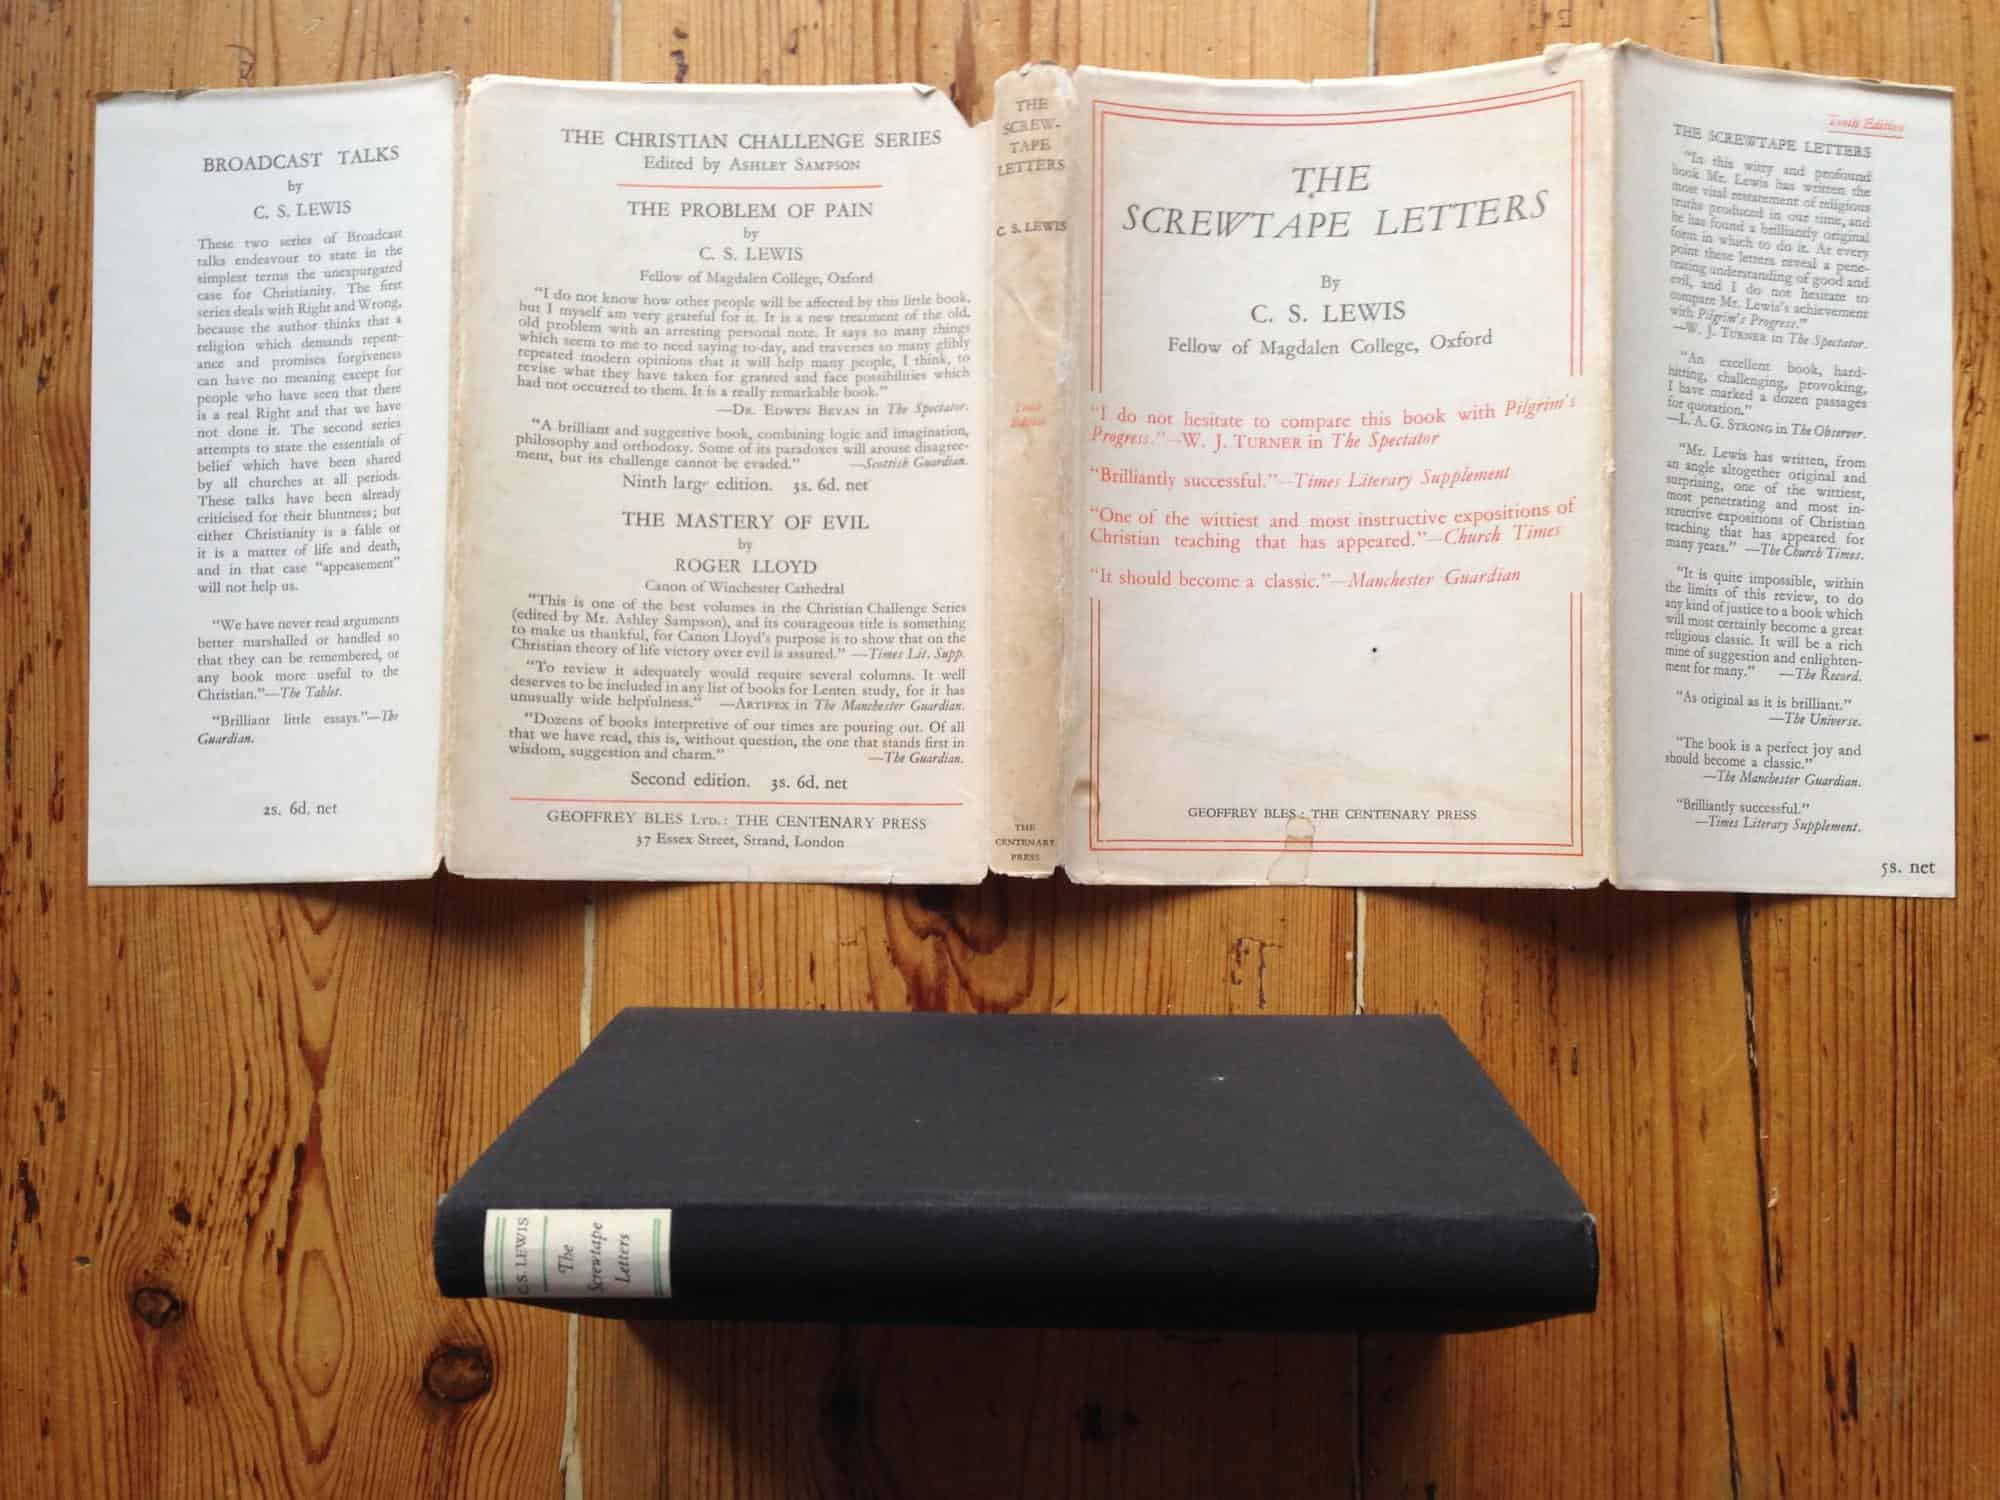 BROADCAST TALKS
by
C. S. LEWIS
These two series of Broadcast
talks endeavour to state in the
simplest terms the unexpurgated
case for Christianity. The first
series deals with Right and Wrong,
because the author thinks that a
religion which demands repent-
ance and promises forgiveness
can have no meaning except for
people who have seen that there
is a real Right and that we have
not done it. The second series
attempts to state the essentials of
belief which have been shared
by all churches at all periods.
These talks have been already
criticised for their bluntness; but
either Christianity is a fable or
it is a matter of life and death,
and in that case "appeasement"
will not help us.
"We have never read arguments
better marshalled or handled so
that they can be remembered, or
any book more useful to the
Christian."—The Tablet.
"Brilliant little essays."—The
Guardian.
2s. 6d. net
THE CHRISTIAN CHALLENGE SERIES
Edited by ASHLEY SAMPSON
THE PROBLEM OF PAIN
by
C. S. LEWIS
Fellow of Magdalen College, Oxford
"I do not know how other people will be affected by this little book,
but I myself am very grateful for it. It is a new treatment of the old,
old problem with an arresting personal note. It says so many things
which seem to me to need saying to-day, and traverses so many glibly
repeated modern opinions that it will help many people, I think, to
revise what they have taken for granted and face possibilities which
had not occurred to them. It is a really remarkable book."
—DR. EDWYN BEVAN in The Spectator.
"A brilliant and suggestive book, combining logic and imagination,
philosophy and orthodoxy. Some of its paradoxes will arouse disagree-
ment, but its challenge cannot be evaded." —Scottish Guardian.
Ninth large edition. 3s. 6d. net
THE MASTERY OF EVIL
by
ROGER LLOYD
Canon of Winchester Cathedral
"This is one of the best volumes in the Christian Challenge Series
(edited by Mr. Ashley Sampson), and its courageous title is something
to make us thankful, for Canon Lloyd's purpose is to show that on the
Christian theory of life victory over evil is assured." —Times Lit. Supp.
"To review it adequately would require several columns. It well
deserves to be included in any list of books for Lenten study, for it has
unusually wide helpfulness." —ARTIFEX in The Manchester Guardian.
"Dozens of books interpretive of our times are pouring out. Of all
that we have read, this is, without question, the one that stands first in
wisdom, suggestion and charm." —The Guardian.
Second edition. 3s. 6d. net
GEOFFREY BLES LTD.: THE CENTENARY PRESS
37 Essex Street, Strand, London
THE
SCREW-
TAPE
LETTERS
C. S. LEWIS
Tenth
Edition
THE
CENTENARY
PRESS
THE
SCREWTAPE LETTERS
By
C. S. LEWIS
Fellow of Magdalen College, Oxford
"I do not hesitate to compare this book with Pilgrim's
Progress."—W. J. TURNER in The Spectator
"Brilliantly successful."—Times Literary Supplement
"One of the wittiest and most instructive expositions of
Christian teaching that has appeared."—Church Times
"It should become a classic."—Manchester Guardian
GEOFFREY BLES: THE CENTENARY PRESS
Tenth Edition
THE SCREWTAPE LETTERS
"In this witty and profound
book Mr. Lewis has written the
most vital restatement of religious
truths produced in our time, and
he has found a brilliantly original
form in which to do it. At every
point these letters reveal a pene-
trating understanding of good and
evil, and I do not hesitate to
compare Mr. Lewis's achievement
with Pilgrim's Progress."
—W. J. TURNER in The Spectator.
"An excellent book, hard-
hitting, challenging, provoking,
I have marked a dozen passages
for quotation."
—L. A. G. STRONG in The Observer.
"Mr. Lewis has written, from
an angle altogether original and
surprising, one of the wittiest,
most penetrating and most in-
structive expositions of Christian
teaching that has appeared for
many years." —The Church Times.
"It is quite impossible, within
the limits of this review, to do
any kind of justice to a book which
will most certainly become a great
religious classic. It will be a rich
mine of suggestion and enlighten-
ment for many." —The Record.
"As original as it is brilliant."
—The Universe.
"The book is a perfect joy and
should become a classic."
—The Manchester Guardian.
"Brilliantly successful."
—Times Literary Supplement.
5s. net
C.S. LEWIS
The
Screwtape
Letters